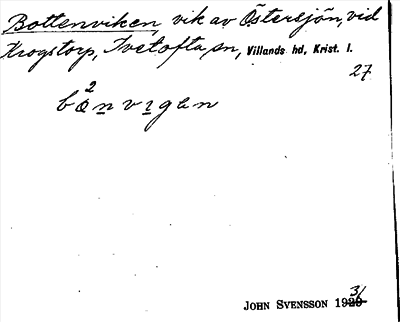 Bottenviken, vik av Östersjön, vid
Krogstorp, Tvetofta sn, Villands hd, Krist. l.
27
bo²n vıgen
JOHN SVENSSON 1931